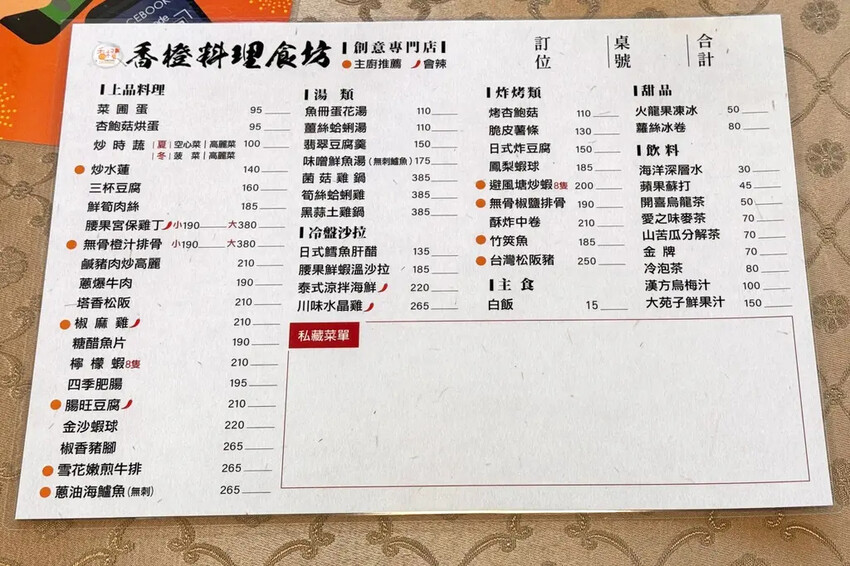 CEBOOK
香橙料理食坊
創意專門店
主廚推薦 會辣
訂位
桌號
合計
上品料理
菜圃蛋 95
杏鮑菇烘蛋 95
炒時蔬 夏|空心菜|高麗菜 100
冬|菠菜|高麗菜
炒水蓮 140
三杯豆腐 160
鮮筍肉絲 185
腰果宮保雞丁 小190 大380
無骨橙汁排骨 小190 大380
鹹豬肉炒高麗 210
蔥爆牛肉 190
塔香松阪 210
椒麻雞 210
糖醋魚片 210
檸檬蝦8隻 210
四季肥腸 195
腸旺豆腐 210
金沙蝦球 220
椒香豬腳 265
雪花嫩煎牛排 265
蔥油海鱸魚(無刺) 265
湯類
魚冊蛋花湯 110
薑絲蛤蜊湯 110
翡翠豆腐羹 150
味噌鮮魚湯(無刺鱸魚) 175
菌菇雞鍋 385
筍絲蛤蜊雞 385
黑蒜土雞鍋 385
冷盤沙拉
日式鱈魚肝醋 135
腰果鮮蝦溫沙拉 185
泰式涼拌海鮮 220
川味水晶雞 265
炸烤類
烤杏鮑菇 110
脆皮薯條 130
日式炸豆腐 150
鳳梨蝦球 185
避風塘炒蝦8隻 200
無骨椒鹽排骨 190
酥炸中卷 210
竹筴魚 210
台灣松阪豬 250
主食
白飯 15
甜品
火龍果凍冰 50
蘿絲冰卷 80
飲料
海洋深層水 30
蘋果蘇打 45
開喜烏龍茶 50
愛之味麥茶 70
山苦瓜分解茶 70
金牌 70
冷泡茶 80
漢方烏梅汁 100
大苑子鮮果汁 150
私藏菜單